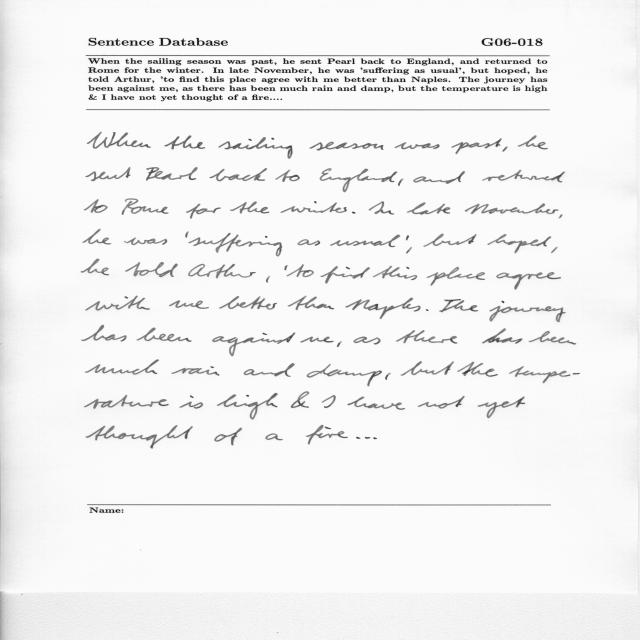 Sentence Database G06-018
When the sailing season was past, he sent Pearl back to England, and returned to
Rome for the winter. In late November, he was 'suffering as usual', but hoped, he
told Arthur, 'to find this place agree with me better than Naples. The journey has
been against me, as there has been much rain and damp, but the temperature is high
& I have not yet thought of a fire....
When the sailing season was past, he
sent Pearl back to England, and returned
to Rome for the winter. In late November,
he was 'suffering as usual', but hoped,
he told Arthur, 'to find this place agree
with me better than Naples. The journey
has been against me, as there has been
much rain and damp, but the tempe-
rature is high & I have not yet
thought of a fire...
Name: